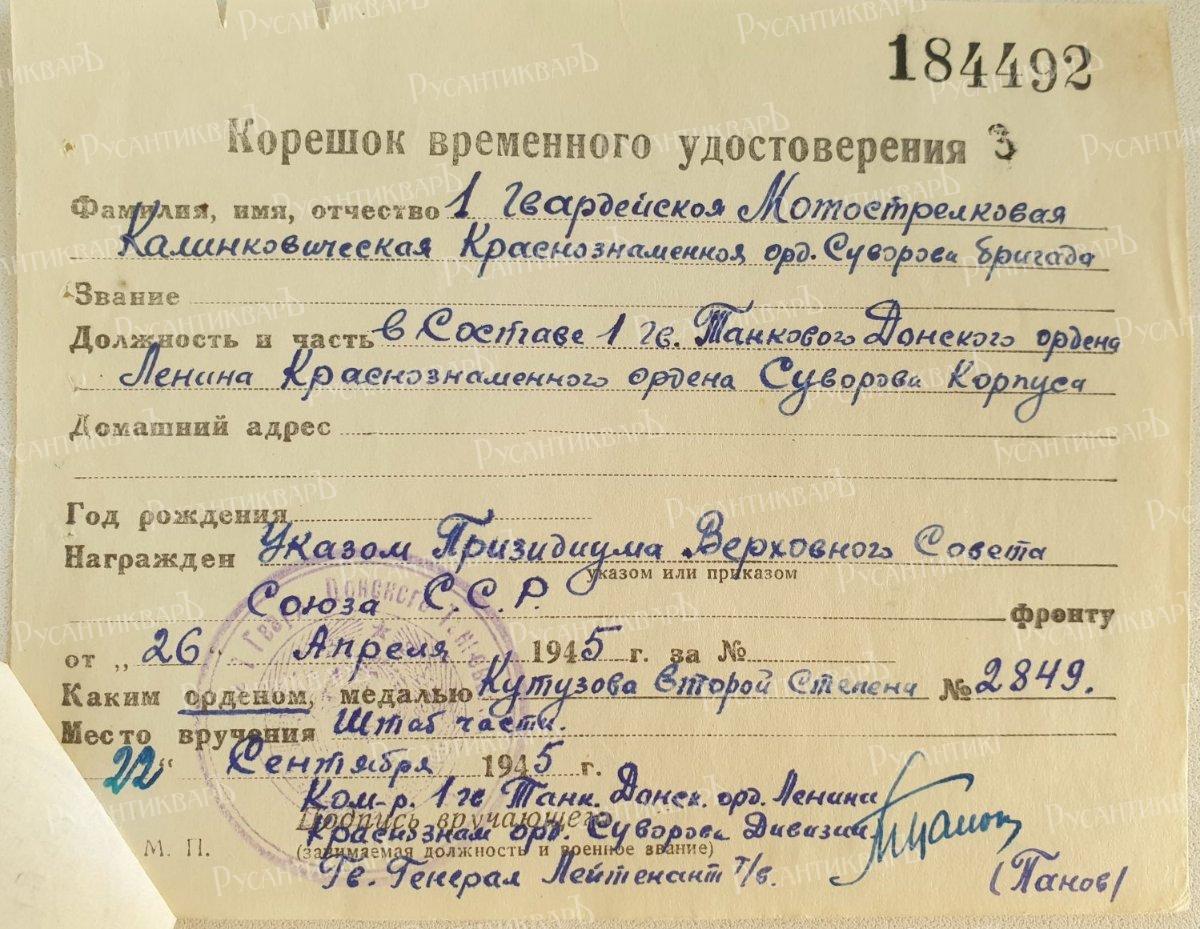 184492
Корешок временного удостоверения З
Фамилия, имя, отчество 1 Гвардейская Мотострелковая
Калинковическая Краснознаменная орд. Суворова бригада
Звание
Должность и часть в Составе 1 гв. Танкового Донского ордена
Ленина Краснознаменного ордена Суворова Корпуса
Домашний адрес
Год рождения
Награжден Указом Призидиума Верховного Совета
указом или приказом
Союза С.С.Р. фронту
от „26“ Апреля 1945 г. за №
Каким орденом, медалью Кутузова Второй Степена № 2849.
Место вручения Штаб части.
22“ Сентября 1945 г.
Ком-р. 1 гв Танк. Донск. орд. Ленина
Подпись вручающего
Краснознам орд. Суворова Дивизии
М. П. (занимаемая должность и военное звание)
Гв. Генерал Лейтенант т/в. (Панов)
РусантикварЪ